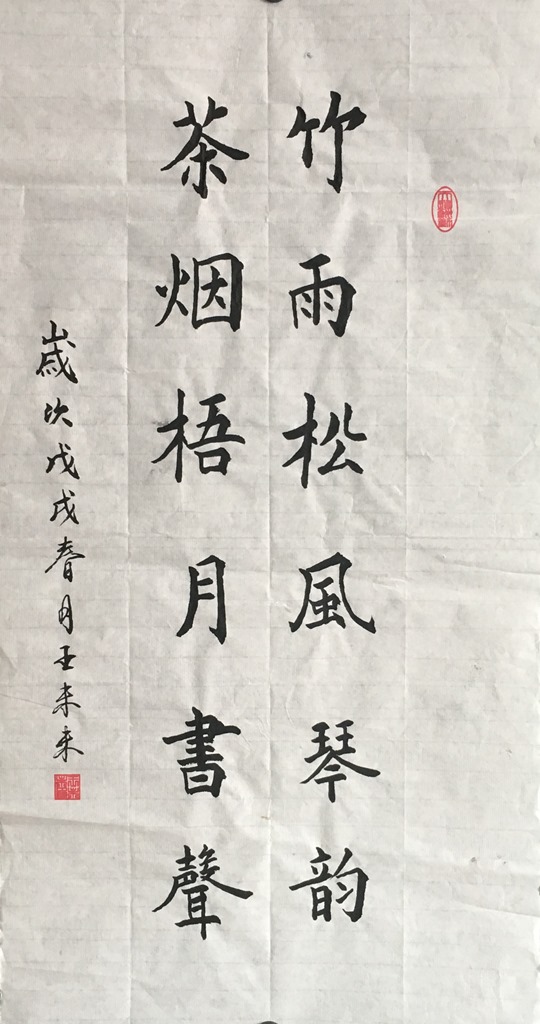 竹雨松風琴韵
茶烟梧月書聲
歲次戊戌春月王未来